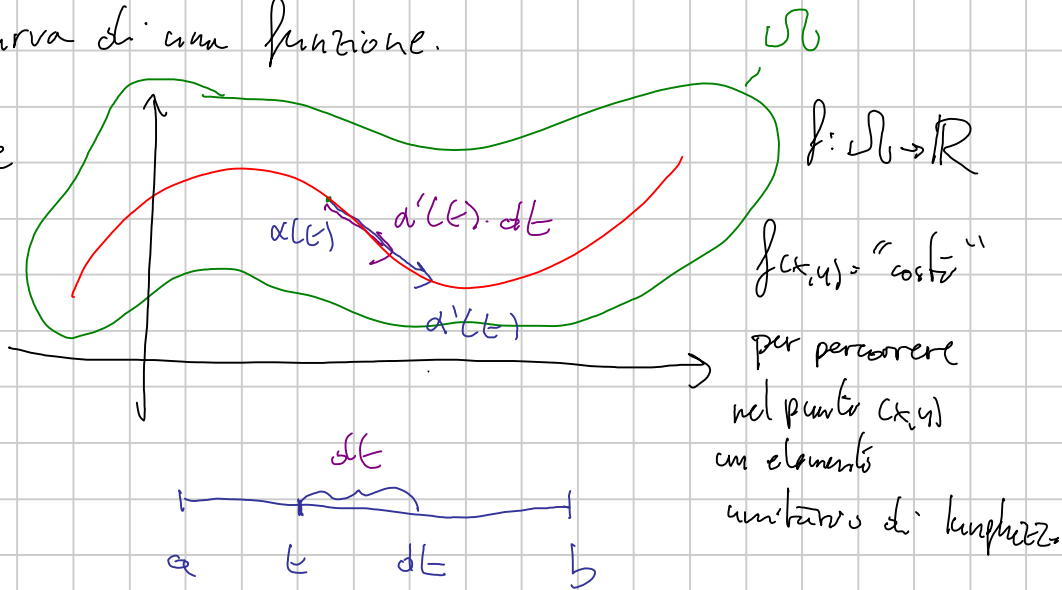 di una funzione.
Ω
f: Ω → ℝ
α(t)
α'(t) · dt
α'(t)
f(x,y) = "costo"
per percorrere
nel punto (x,y)
un elemento
unitario di lunghezz.
dt
a t dt b